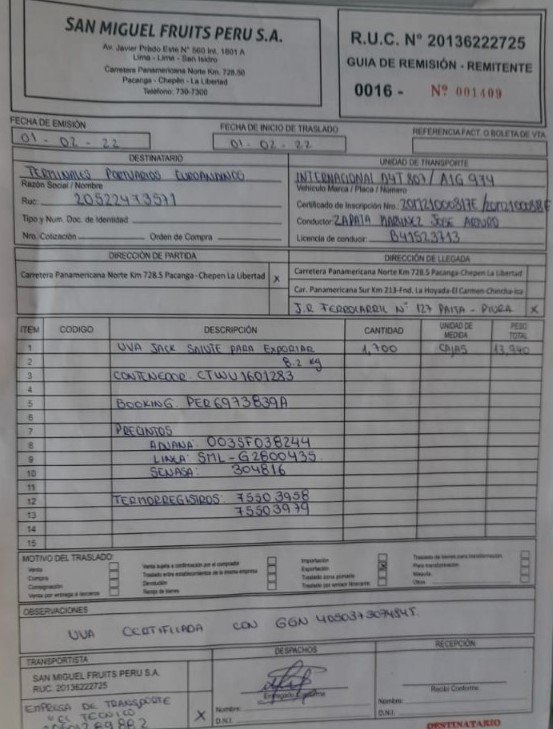 SAN MIGUEL FRUITS PERU S.A.
Av. Javier Prado Este N° 560 Int. 1601 A
Lima - Lima - San Isidro
Carretera Panamericana Norte Km. 728.50
Pacanga - Chepén - La Libertad
Teléfono: 730-7300
R.U.C. N° 20136222725
GUIA DE REMISIÓN - REMITENTE
0016 - Nº 001409
FECHA DE EMISIÓN
01 - 02 - 22
FECHA DE INICIO DE TRASLADO
01 - 02 - 22
REFERENCIA FACT. O BOLETA DE VTA.
DESTINATARIO
TERMINALES PORTUARIOS EUROANDINOS
Razón Social / Nombre
Ruc: 20522473571
Tipo y Num. Doc. de Identidad
Nro. Cotización Orden de Compra
UNIDAD DE TRANSPORTE
INTERNACIONAL D4T 807 / A1G 974
Vehículo Marca / Placa / Número
Certificado de Inscripción Nro.
Conductor: ZAPATA JOSE ARTURO
Licencia de conducir B41523713
DIRECCIÓN DE PARTIDA
Carretera Panamericana Norte Km 728.5 Pacanga-Chepen La Libertad X
DIRECCIÓN DE LLEGADA
Carretera Panamericana Norte Km 728.5 Pacanga-Chepen La Libertad
Car. Panamericana Sur Km 213-Fnd. La Hoyada-El Carmen-Chincha-Ica
J.R FERROCARRIL N° 127 PAITA - PIURA X
ITEM CODIGO DESCRIPCIÓN CANTIDAD UNIDAD DE MEDIDA PESO TOTAL
1 UVA JACK SALUTE PARA EXPORTAR 1,700 CAJAS 13,940
2 8.2 kg
3 CONTENEDOR: CTWU 1601283
4
5 BOOKING PER6973839A
6
7 PRECINTOS
8 ADUANA: 0035F038244
9 LINEA: SML-G2800435
10 SENASA: 304816
11
12 TERMORREGISTROS: 75503958
13 75503979
14
15
MOTIVO DEL TRASLADO:
Venta
Compra
Consignación
Venta por entrega a terceros
Venta sujeta a confirmación por el comprador
Traslado entre establecimientos de la misma empresa
Devolución
Recojo de bienes
Importación
Exportación X
Traslado zona primaria
Traslado por emisor itinerante
Traslado de bienes para transformación
Para transformación
Otros
OBSERVACIONES
UVA CERTIFICADA CON GGN
TRANSPORTISTA
SAN MIGUEL FRUITS PERU S.A.
RUC. 20136222725
EMPRESA DE TRANSPORTE
"EL TECNICO X
DESPACHOS
Entregado Conforme
Nombre:
D.N.I.
RECEPCIÓN
Recibí Conforme
Nombre:
D.N.I.
DESTINATARIO